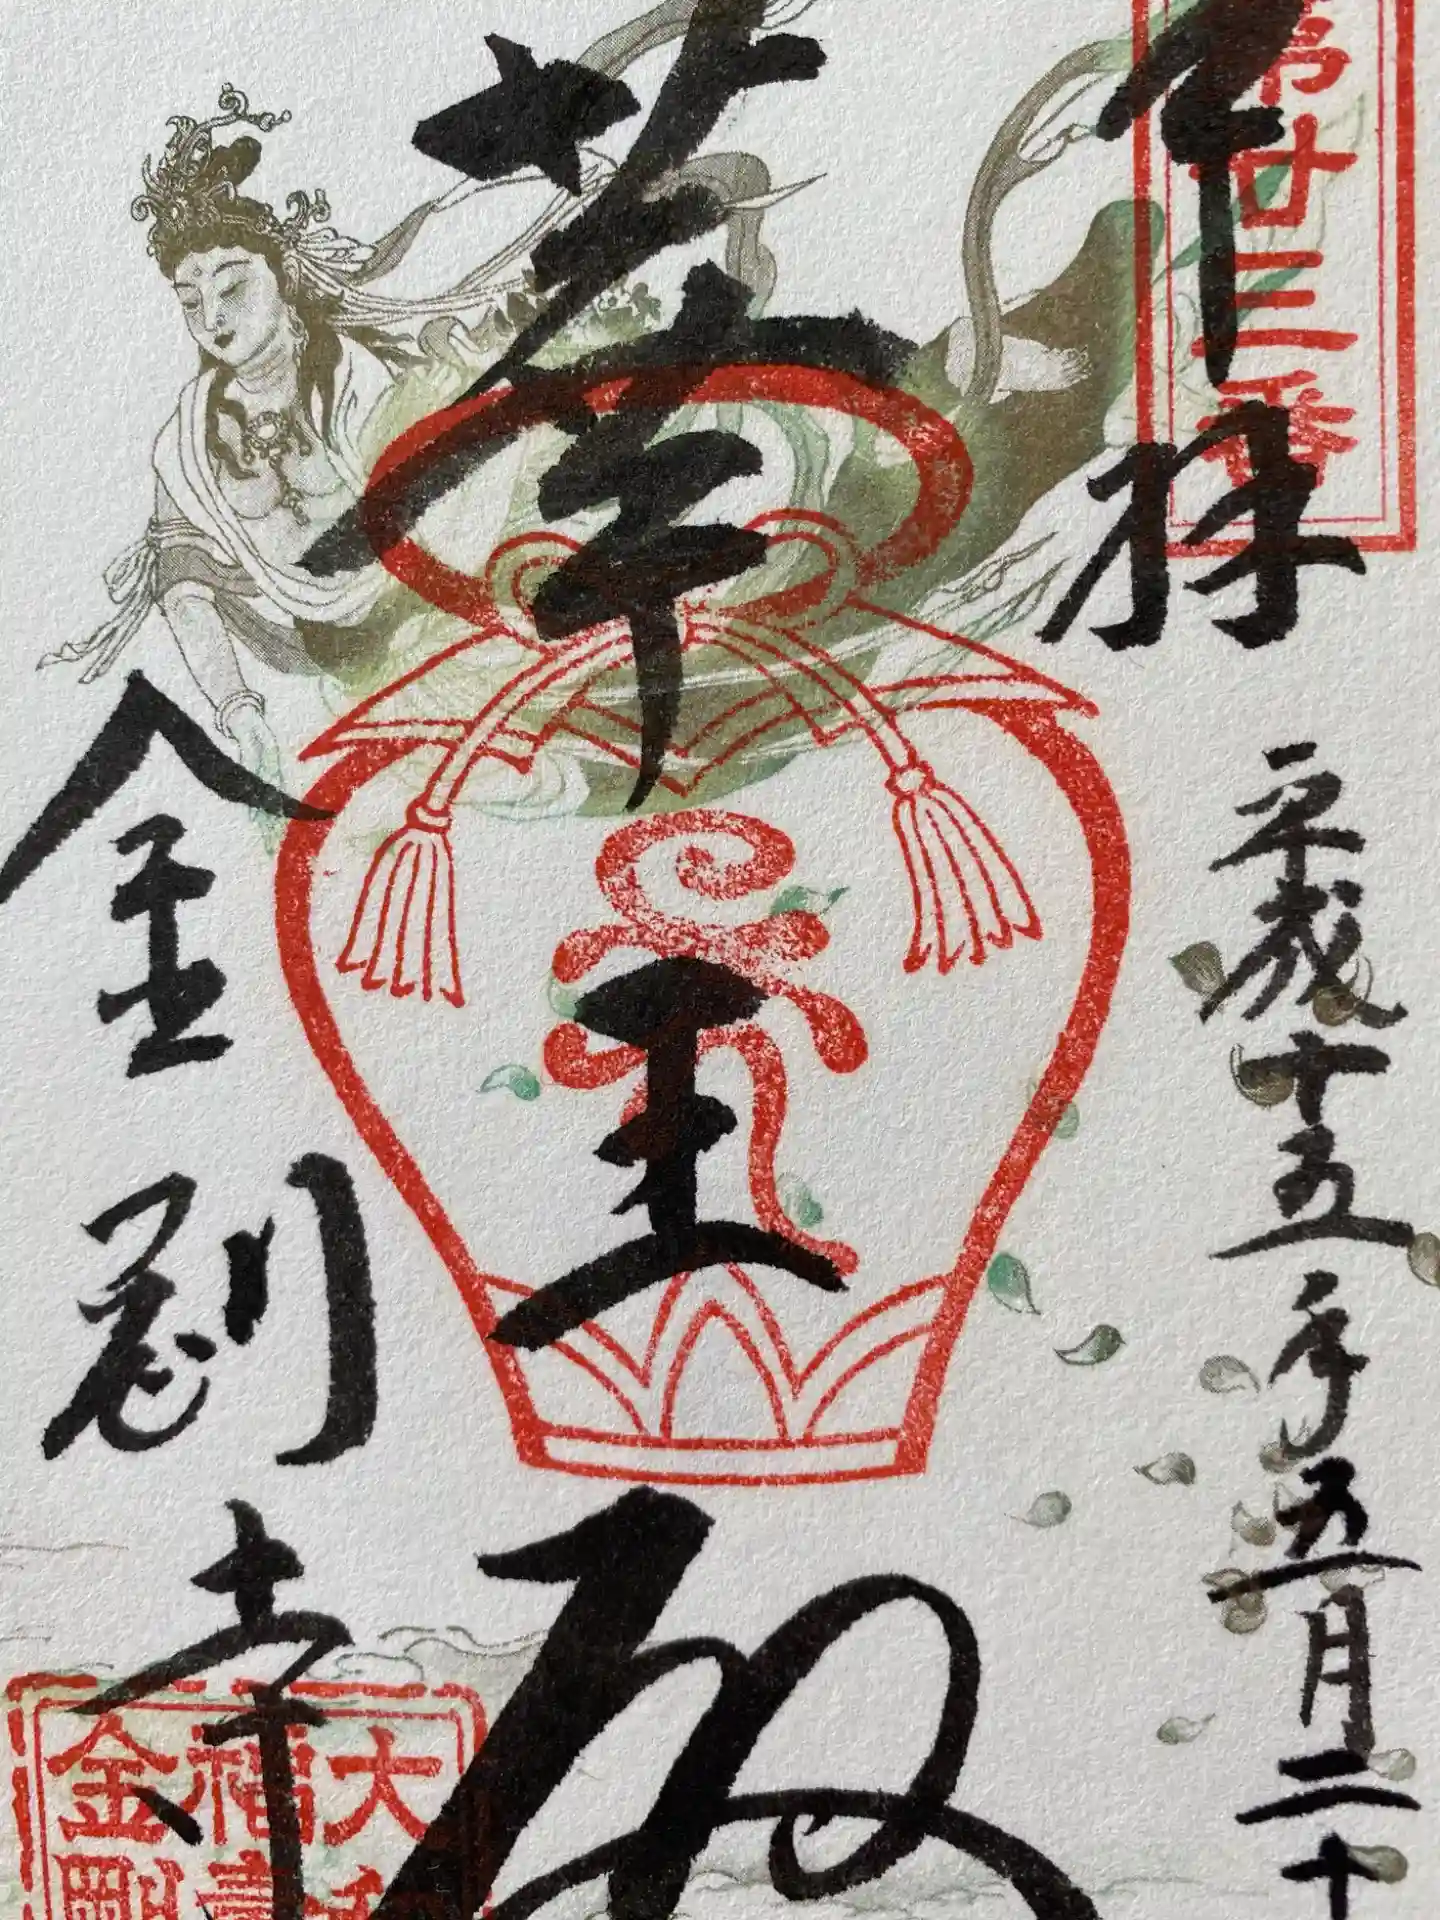 第廿三番
奉拝
平成十五年五月二十
華王殿
金剛寺
大
福
金剛